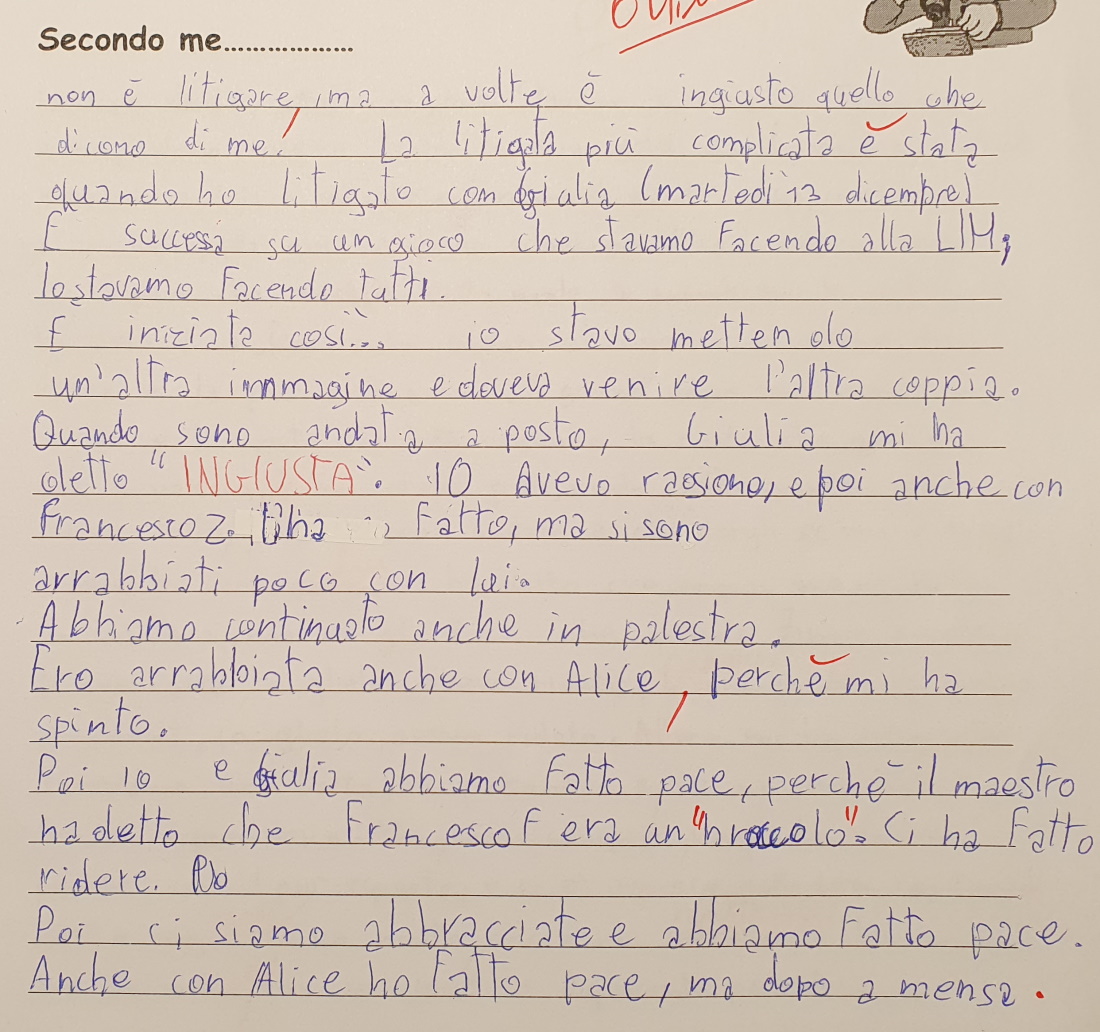 Secondo me..................
non è litigare, ma a volte è ingiusto quello che
dicono di me! La litigata più complicata è stata
quando ho litigato con Giulia (martedì 13 dicembre)
È successa su un gioco che stavamo facendo alla LIM;
lo stavamo facendo tutti.
È iniziata così... io stavo mettendo
un'altra immmagine e doveva venire l'altra coppia.
Quando sono andata a posto, Giulia mi ha
detto "INGIUSTA". IO Avevo ragiono, e poi anche con
Francesco Z. l'ha fatto, ma si sono
arrabbiati poco con lui.
Abbiamo continuato anche in palestra.
Ero arrabbiata anche con Alice, perchè mi ha
spinto.
Poi io e Giulia abbiamo fatto pace, perchè il maestro
ha detto che Francesco F era un "broccolo". Ci ha fatto
ridere.
Poi ci siamo abbracciate e abbiamo fatto pace.
Anche con Alice ho fatto pace, ma dopo a mensa.